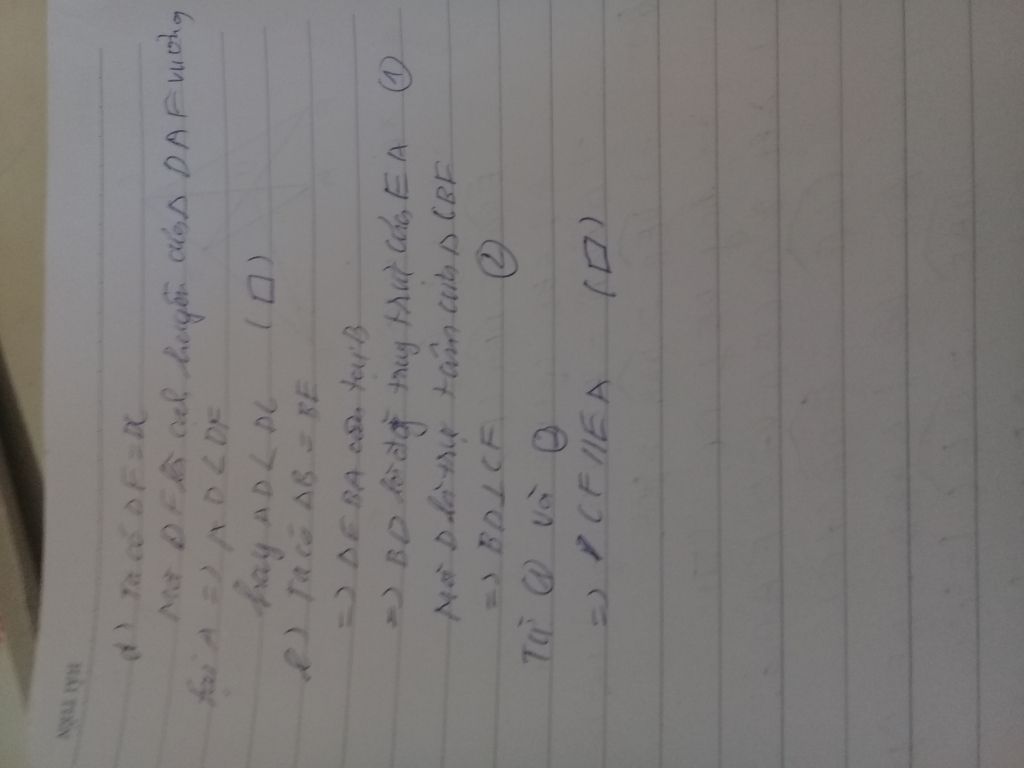 d) Ta có DF = DC
Mà DF là cạh huyền của Δ DAF vuông
tại A => AD < DF
hay AD < DC (□)
e) Ta có AB = BE
=> Δ EBA cân tại B
=> BD là đg trug trực của EA (1)
Mà D là trực tâm của Δ CBF
=> BD ⊥ CF (2)
Từ (1) và (2)
=> CF // EA (□)